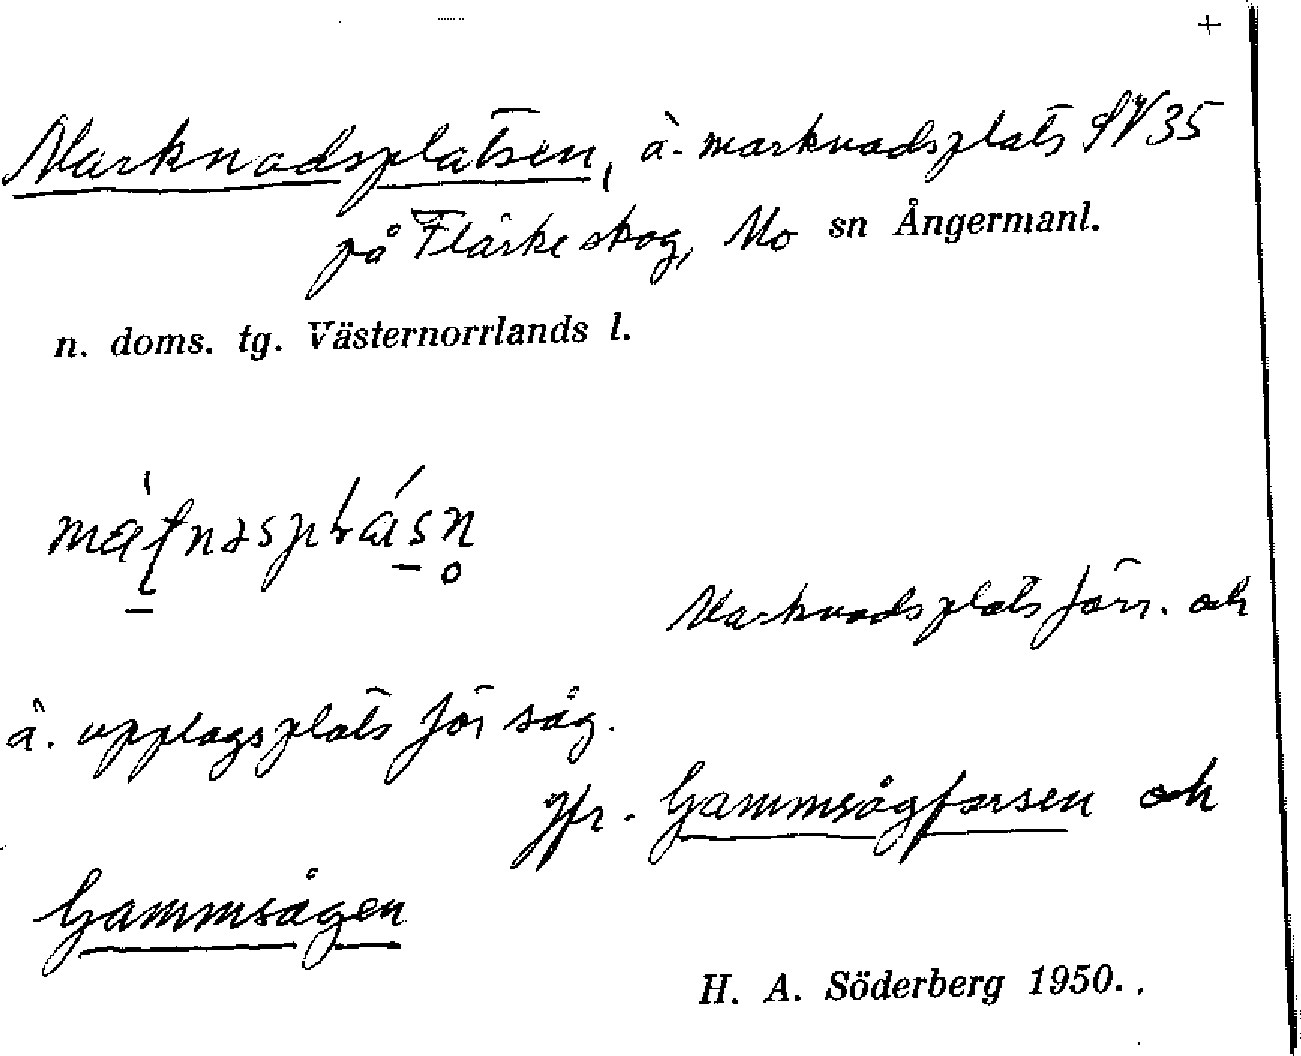 +
Marknadsplatsen, ä. marknadsplats SV35
på Flärkeskog, Mo sn Ångermanl.
n. doms. tg. Västernorrlands l.
Marknadsplats förr. och
ä. upplagsplats för såg.
Jfr. Gammsågforsen och
Gammsågen
H. A. Söderberg 1950..